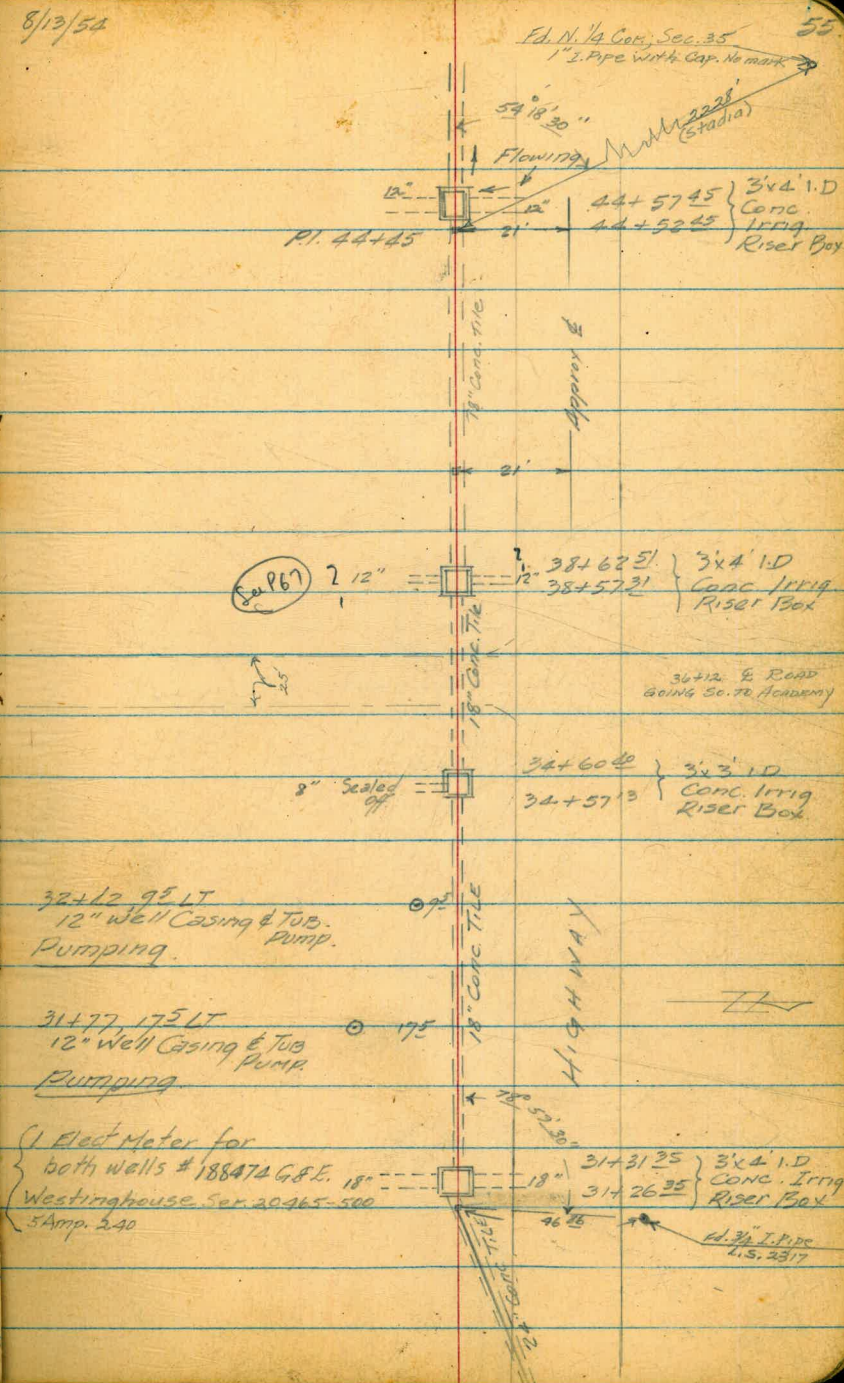 8/13/54
55
Fd. N. 1/4 Cor., Sec. 35
1" I. Pipe with Cap. No mark
54° 18' 30"
2228'
(Stadia)
Flowing
12"
12"
44+57 45
44+52 45
3'x4' I.D
Conc.
Irrig.
Riser Box
P.I. 44+45
21'
18" Conc. Tile
Approx ℄
21'
See P67
? 12"
?
12"
38+62 51
38+57 31
3'x4' I.D
Conc Irrig
Riser Box
25'
18" Conc. Tile
36+12 ℄ ROAD
GOING SO. TO ACADEMY
8" Sealed
off
34+60 40
34+57 13
3'x3' I.D
Conc. Irrig
Riser Box
32+12, 9 5 LT
12" Well Casing & Tub.
Pump.
Pumping.
9 5
18" Conc. TILE
HIGHWAY
31+77, 17 5 LT
12" Well Casing & Tub
Pump.
Pumping
17 5
78° 57' 30"
1 Elect Meter for
both wells # 188474 G&E.
Westinghouse Ser. 20465-500
5 Amp. 240
18"
18"
31+31 35
31+26 35
3'x4' I.D
Conc. Irrig
Riser Box
Fd. 3/4" I. Pipe
L.S. 2317
24" Conc TILE